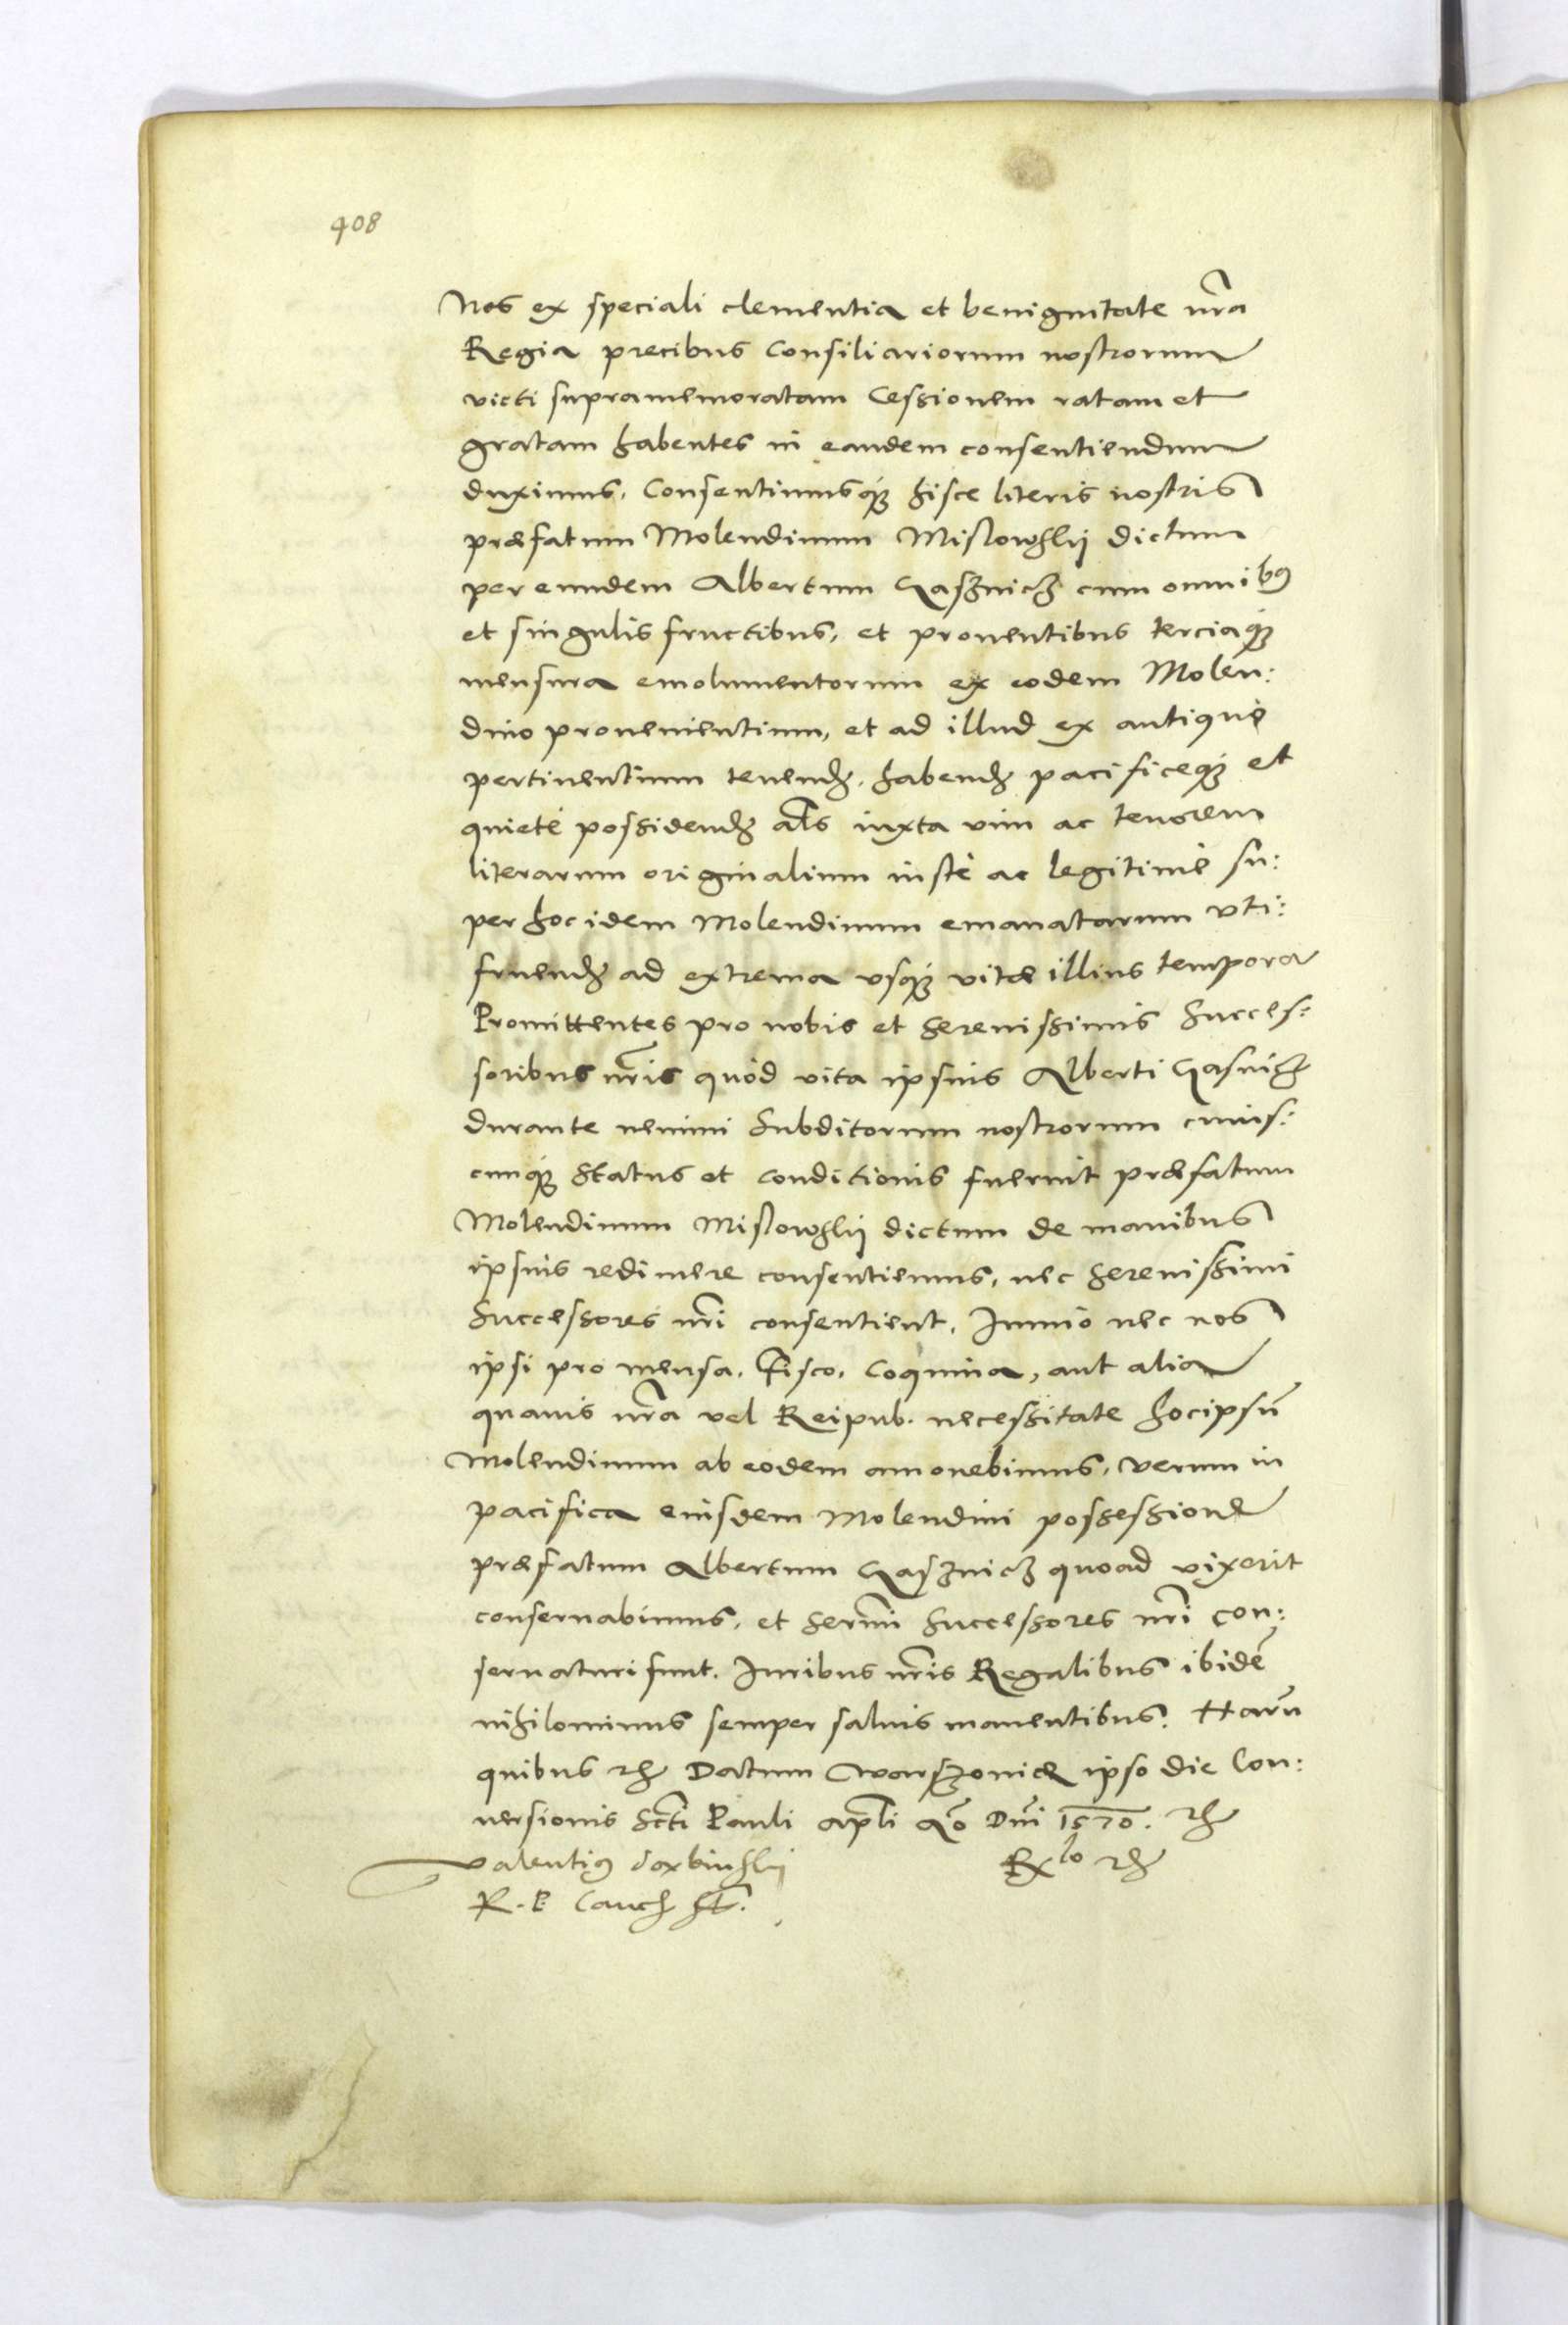 408
Nos ex speciali clementia et benignitate nr̃a
Regia precibus Consiliariorum nostrorum
victi supramemoratam Cessionem ratam et
gratam habentes in eandem consentiendum
duximus. Consentimusq́ꝫ hisce literis nostris
præfatum Molendinum Mislowskij dictum
per eundem Albertum Gasznicz cum omnibꝰ
et singulis fructibus, et prouentibus terciaq́ꝫ
mensura emolumentorum ex eodem Molen:
dino prouenientium, et ad illud ex antiquè
pertinentium tenendꝫ. habendꝫ pacificeq́ꝫ et
quietè possidendꝫ al̃s iuxta vim ac tenorem
literarum originalium iustè ac legitimè su:
per hoc idem Molendinum emanatarum vti:
fruendꝫ ad extrema vsq́ꝫ vitæ illius tempora
Promittentes pro nobis et Serenissimis Succes:
soribus nr̃is quòd vita ipsius Alberti Gasnicz
durante nemini Subditorum nostrorum cuius:
cunq́ꝫ Status et conditionis fuerint præfatum
Molendinum Mislowskij dictum de manibus
ipsius redimere consentiemus, nec Serenissimi
Successores nr̃i consentient. Immò nec nos
ipsi pro mensa. Fisco. Coquina, aut alia
quauis nr̃a vel Reipub. necessitate hocipsũ
Molendinum ab eodem amouebimus, verum in
pacifica eiusdem Molendini possessione
præfatum Albertum Gasznicz quoad vixerit
conseruabimus. et Sermi Successores nr̃i con:
seruaturi sunt. Iuribus nr̃is Regalibus ibidẽ
nihilominus semper saluis manentibus. Harũ
quibus etc Datum Warszouiæ ipso die Con:
uersionis Scti Pauli apl̃i Ao Dñi 1570. etc
Valentiꝰ Dembinskij
R. P. Canc.